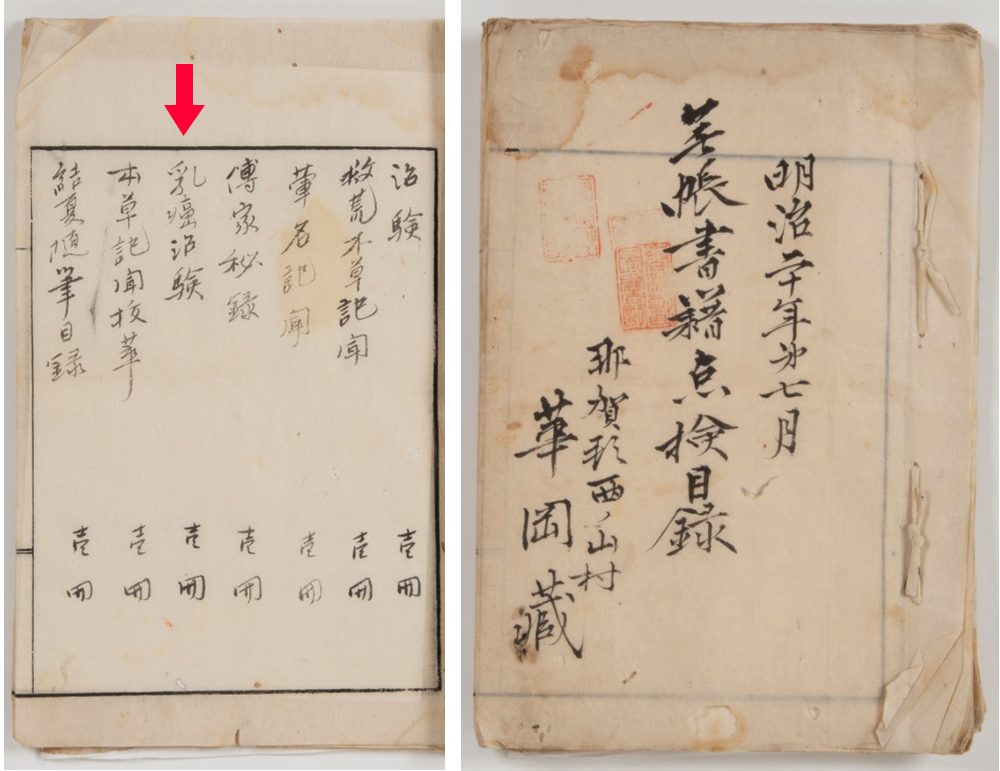 明治二十年第七月
帳書籍点検目録
那賀郡西ノ山村
華岡蔵
治験 壱冊
救荒本草記聞 壱冊
名記聞 壱冊
傳家秘録 壱冊
乳癌治験 壱冊
本草記聞抜萃 壱冊
結夏随筆目録 壱冊